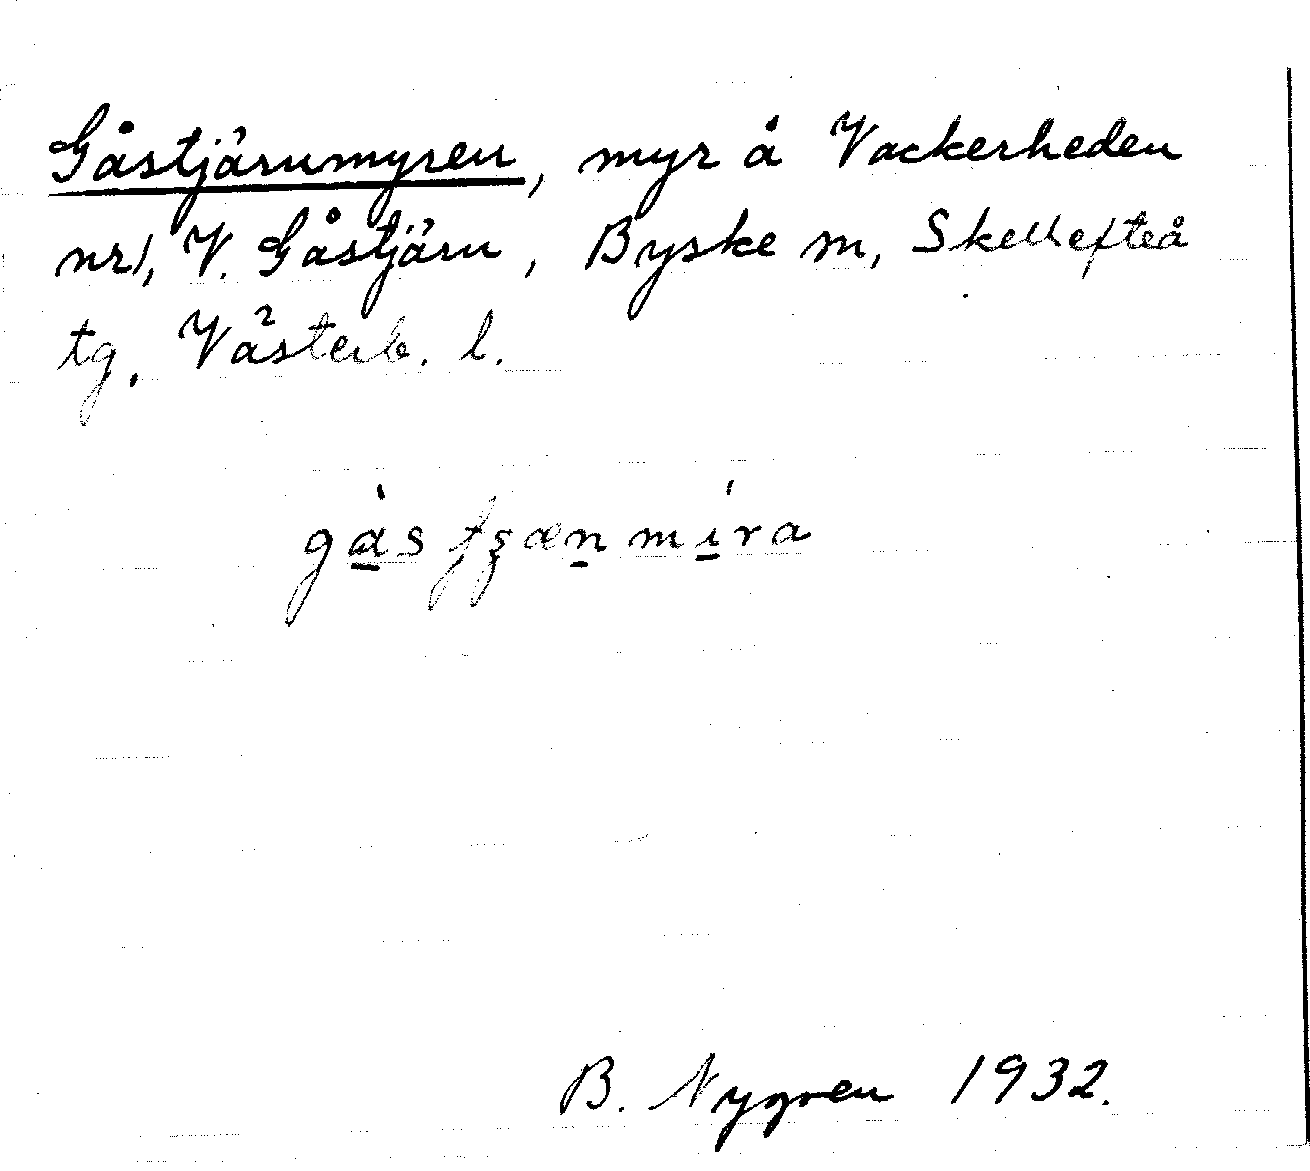 Gåstjärnmyren, myr å Vackerheden
nr1, V. Gåstjärn, Byske sn, Skellefteå
tg, Västerb. l.
gàstʒænmíra
B. Nygren 1932.